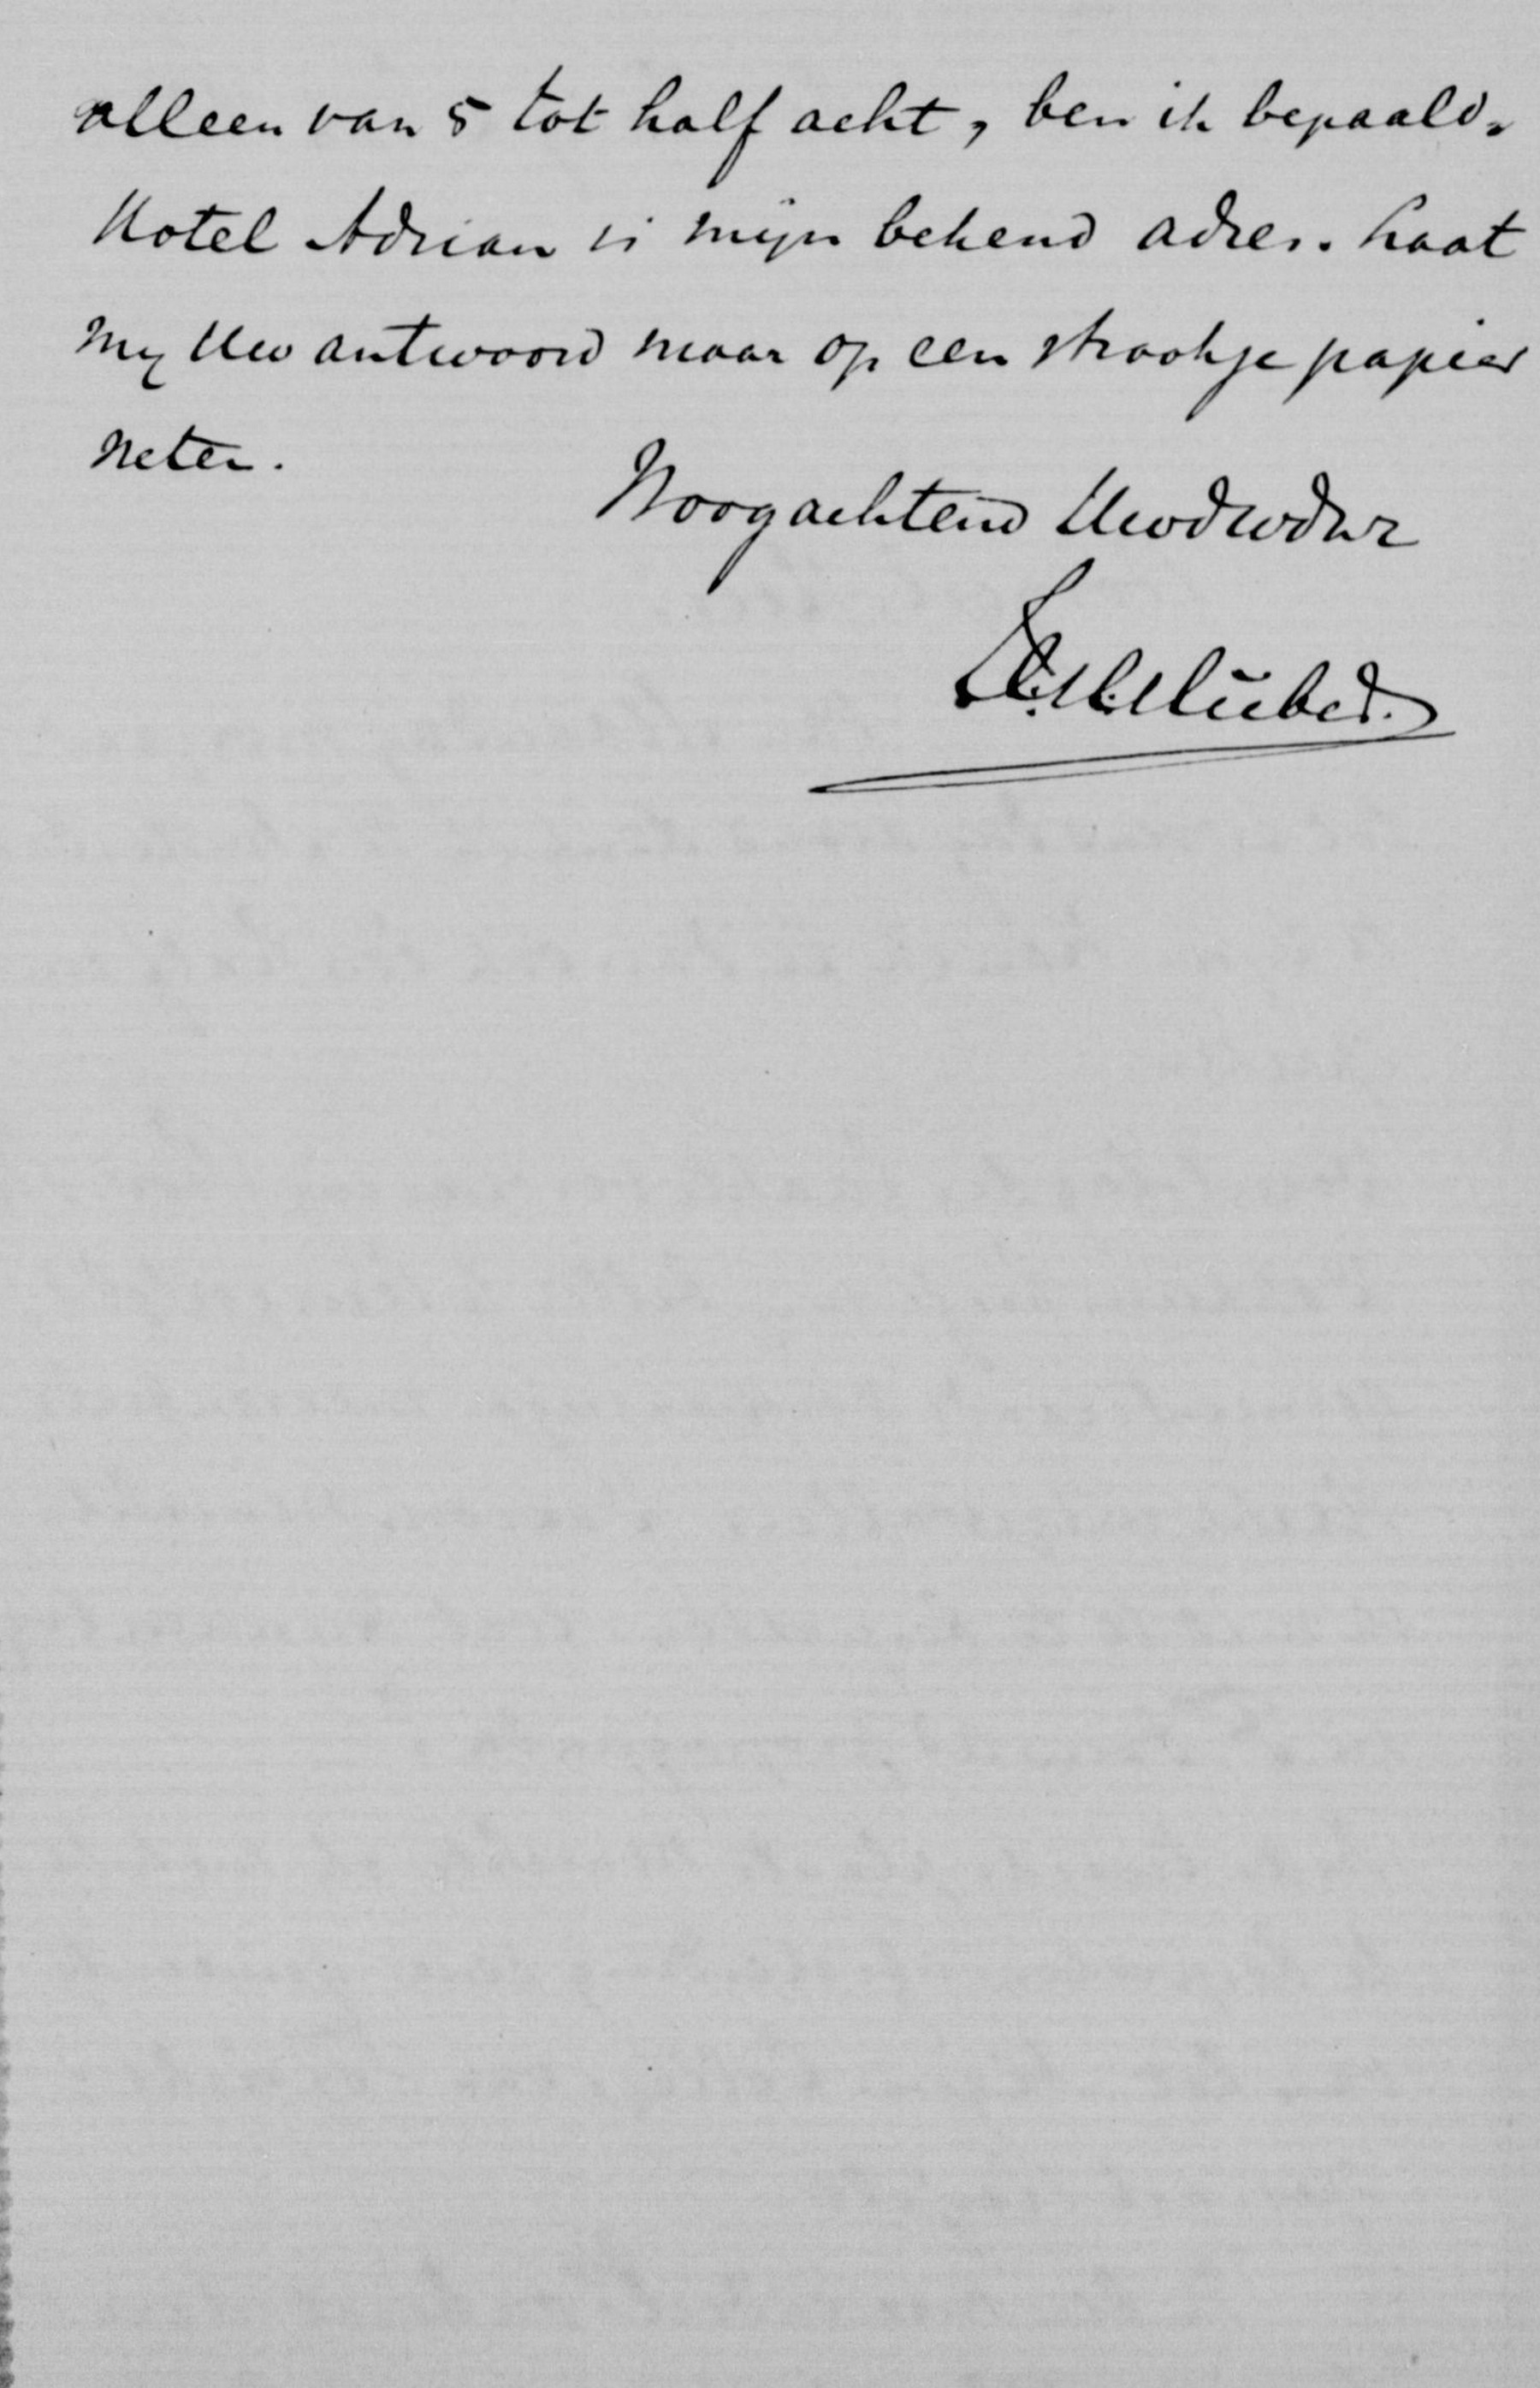 alleen van 5 tot half acht, ben ik bepaald.
Hotel Adrian is mijn bekend adres. Laat
my Uw antwoord maar op een strookje papier
weten.
Hoogachtend Uwdwdnr